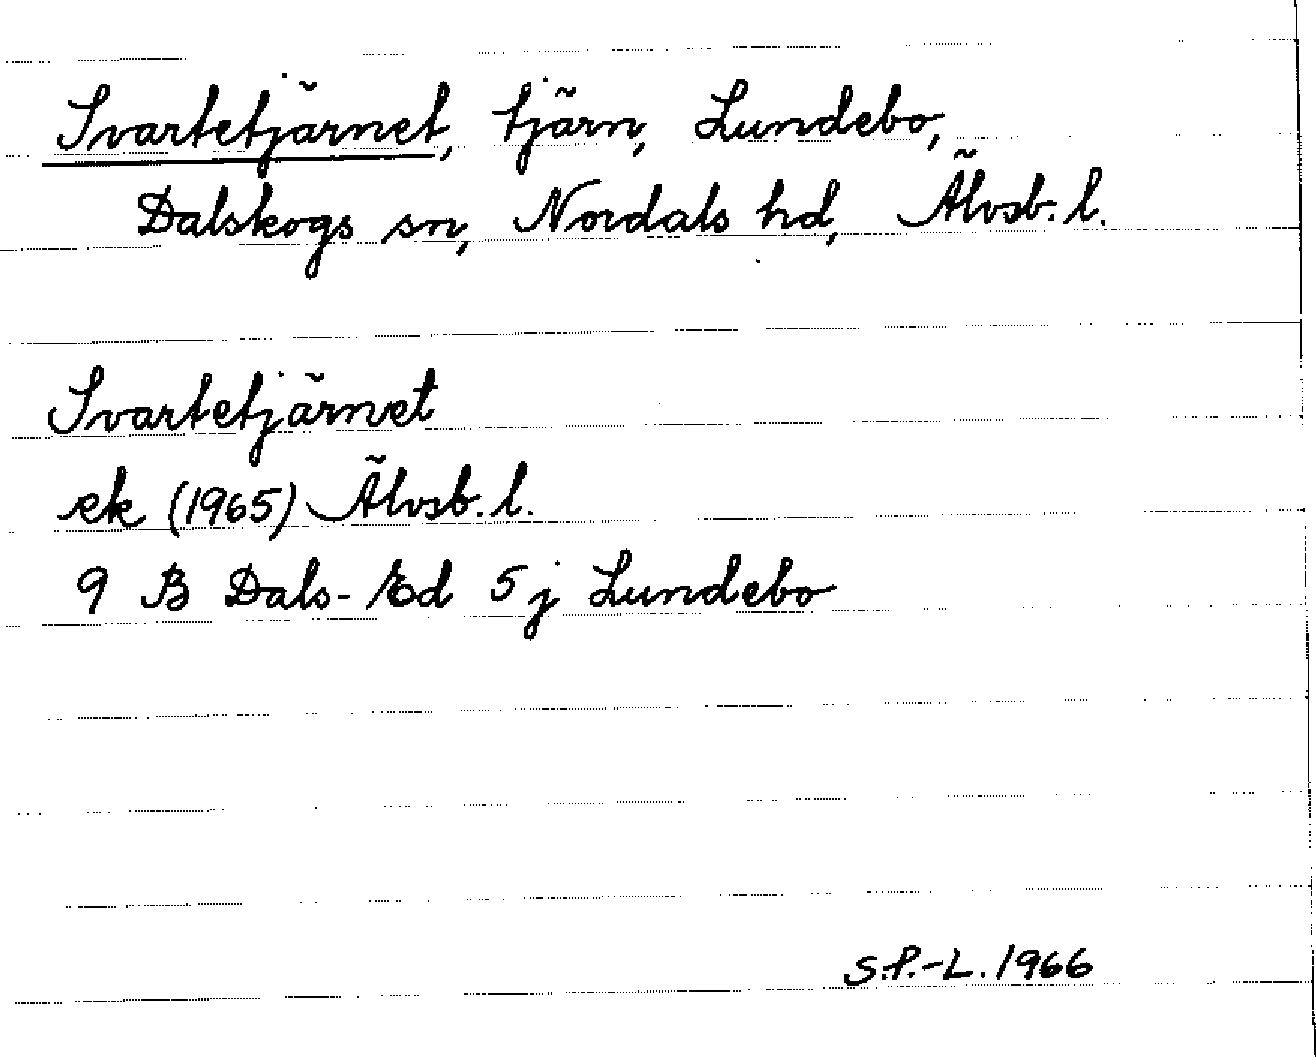 Svartetjärnet, tjärn, Lundebo,
Dalskogs sn, Nordals hd, Älvsb. l.
Svartetjärnet
ek (1965) Älvsb. l.
9 B Dals-Ed 5 j Lundebo
S.P.-L. 1966